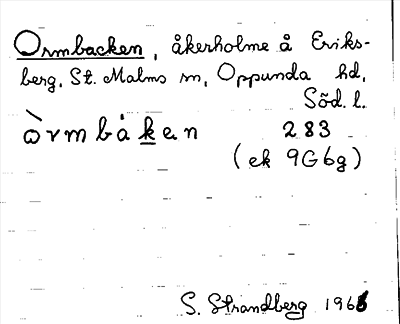 Ormbacken, åkerholme å Eriks-
berg, St. Malms sn, Oppunda hd,
Söd. l.
ò̀rmbȧken 283
(ek 9G6g)
S. Strandberg 1966